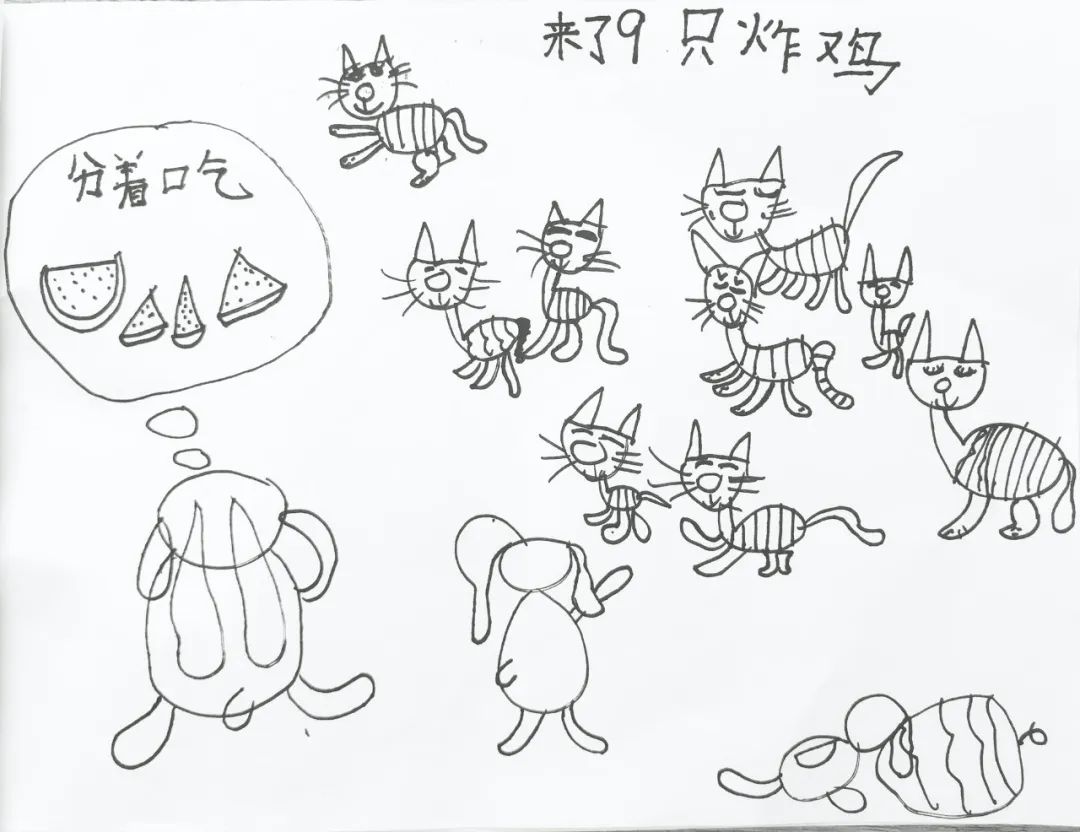 来了9只炸鸡
分着吃